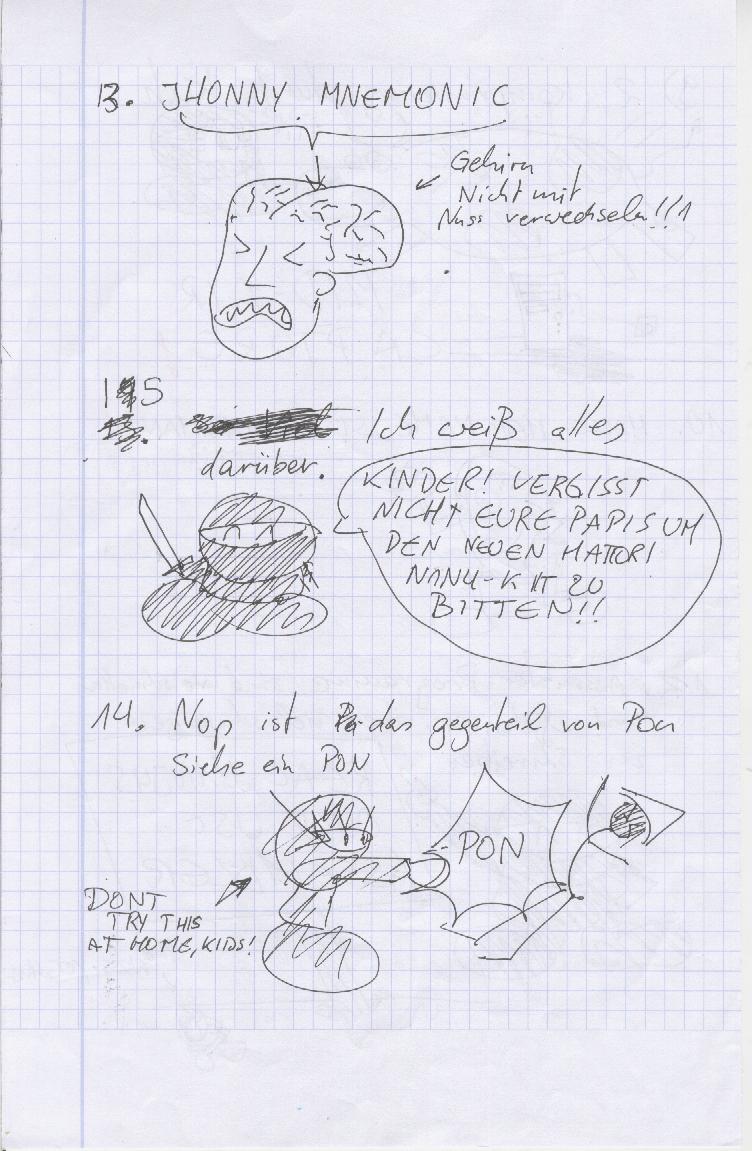 13. JHONNY MNEMONIC
Gehirn
Nicht mit
Nuss verwechseln!!1
15
Ich weiß alles
darüber.
KINDER! VERGISST
NICHT EURE PAPIS UM
DEN NEUEN HATTORI
NANU-KIT ZU
BITTEN!!
14. Nop ist das gegenteil von Pon
Siehe ein PON
PON
DONT
TRY THIS
AT HOME, KIDS!